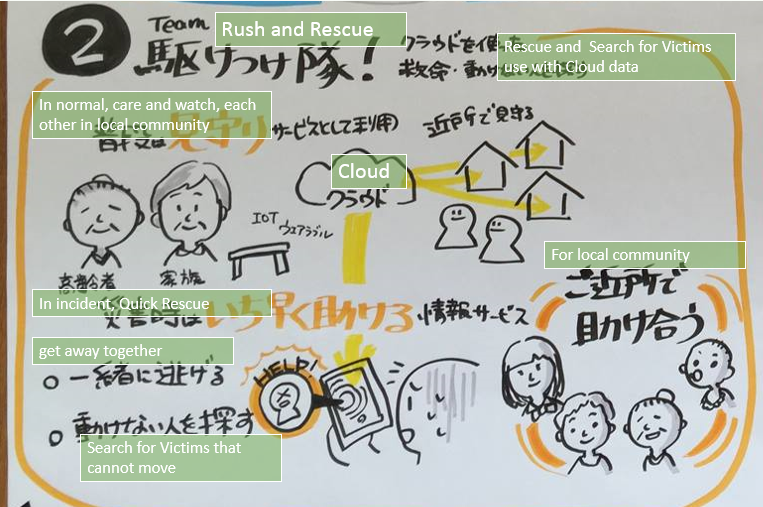 2
Team
Rush and Rescue
駆けつけ隊!
クラウドを使った
Rescue and Search for Victims
use with Cloud data
救命・動けない人を
In normal, care and watch, each
other in local community
普段は見守りサービスとして利用)
近戸所で見守る
Cloud
クラウド
IOT
ウェアラブル
高齢者
家族
For local community
In incident, Quick Rescue
災害時はいち早く助ける情報サービス
ご近所で
助け合う
get away together
一緒に逃げる
HELP!
動けない人を探す
Search for Victims that
cannot move